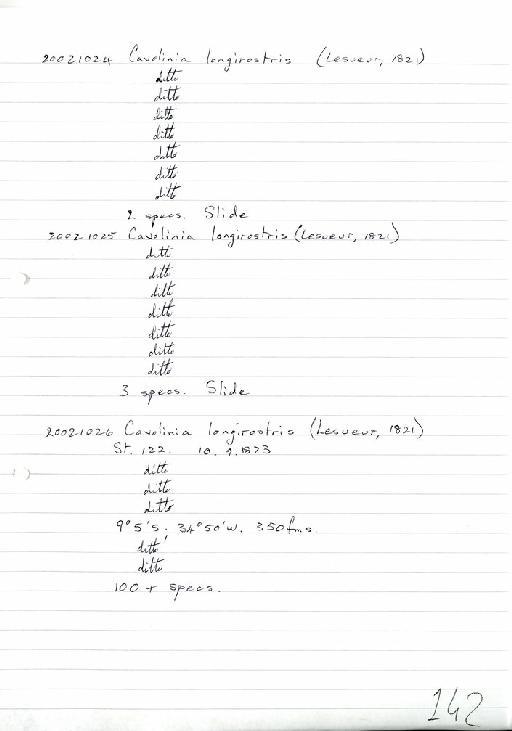 20021024 Cavolinia longirostris (Lesueur, 1821)
ditto
ditto
ditto
ditto
ditto
ditto
ditto
2 specs. Slide
20021025 Cavolinia longirostris (Lesueur, 1821)
ditto
ditto
ditto
ditto
ditto
ditto
ditto
3 specs. Slide
20021026 Cavolinia longirostris (Lesueur, 1821)
St. 122. 10.9.1873
ditto
ditto
ditto
9°5's. 34°50'w. 350fms.
ditto
ditto
100+ specs.
142